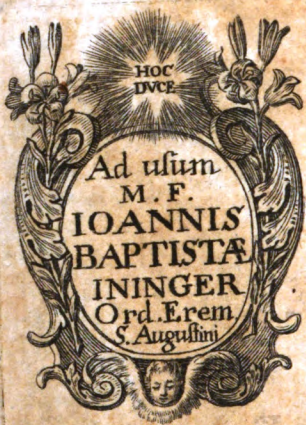 HOC
DVCE
Ad uſum
M. F.
IOANNIS
BAPTISTÆ
ININGER
Ord. Erem.
S. Auguſtini